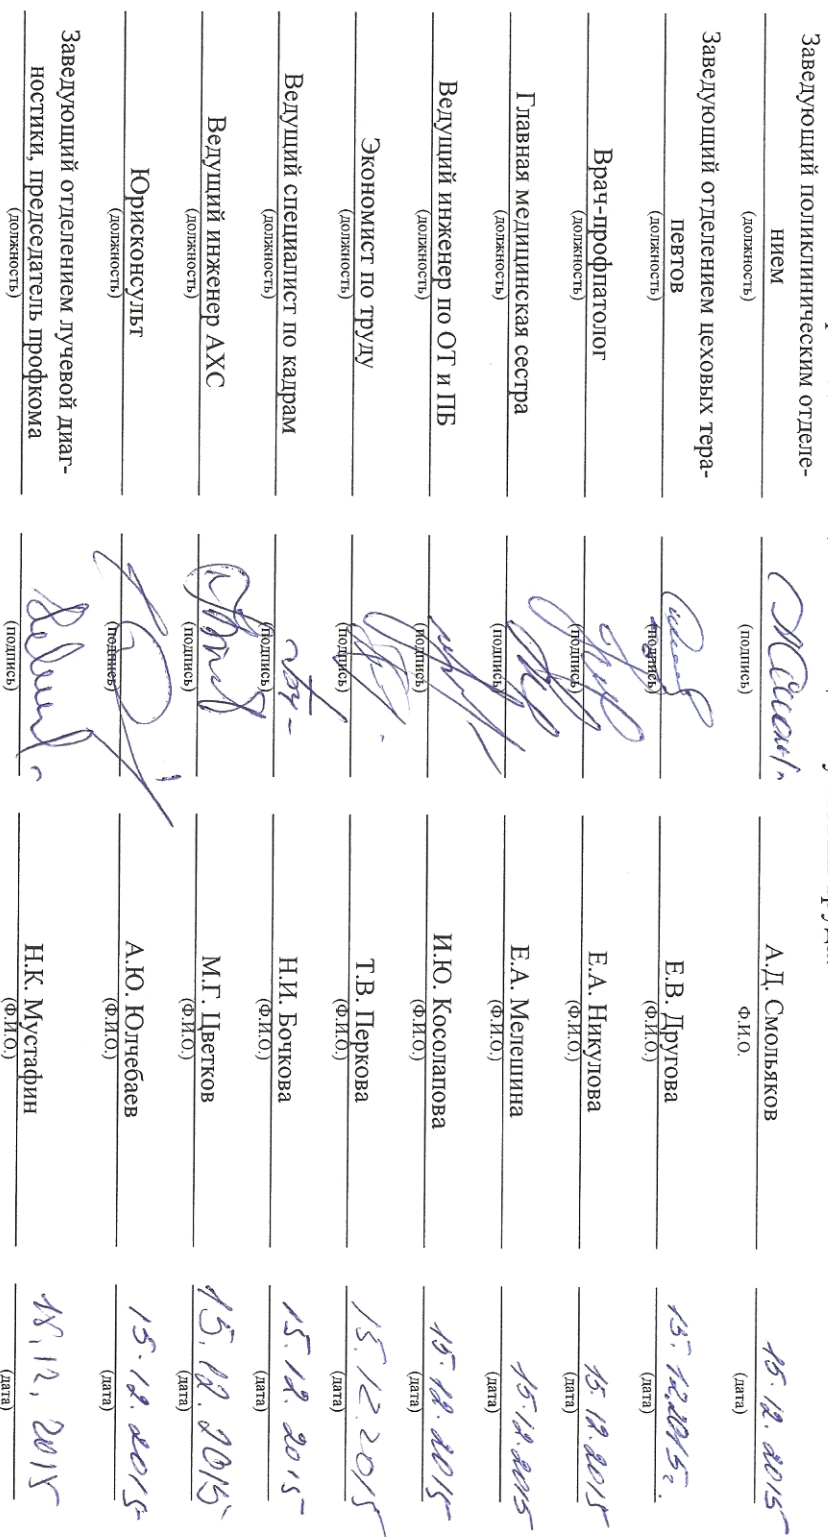 Заведующий поликлиническим отделе-
нием А.Д. Смольяков 15.12.2015
(должность) (подпись) Ф.И.О. (дата)
Заведующий отделением цеховых тера-
певтов Е.В. Другова 15.12.2015г.
(должность) (подпись) (Ф.И.О.) (дата)
Врач-профпатолог Е.А. Никулова 15.12.2015
(должность) (подпись) (Ф.И.О.) (дата)
Главная медицинская сестра Е.А. Мелешина 15.12.2015
(должность) (подпись) (Ф.И.О.) (дата)
Ведущий инженер по ОТ и ПБ И.Ю. Косолапова 15.12.2015
(должность) (подпись) (Ф.И.О.) (дата)
Экономист по труду Т.В. Перкова 15.12.2015
(должность) (подпись) (Ф.И.О.) (дата)
Ведущий специалист по кадрам Н.И. Бочкова 15.12.2015
(должность) (подпись) (Ф.И.О.) (дата)
Ведущий инженер АХС М.Г. Цветков 15.12.2015
(должность) (подпись) (Ф.И.О.) (дата)
Юрисконсульт А.Ю. Юлчебаев 15.12.2015
(должность) (подпись) (Ф.И.О.) (дата)
Заведующий отделением лучевой диаг-
ностики, председатель профкома Н.К. Мустафин 15.12.2015
(должность) (подпись) (Ф.И.О.) (дата)